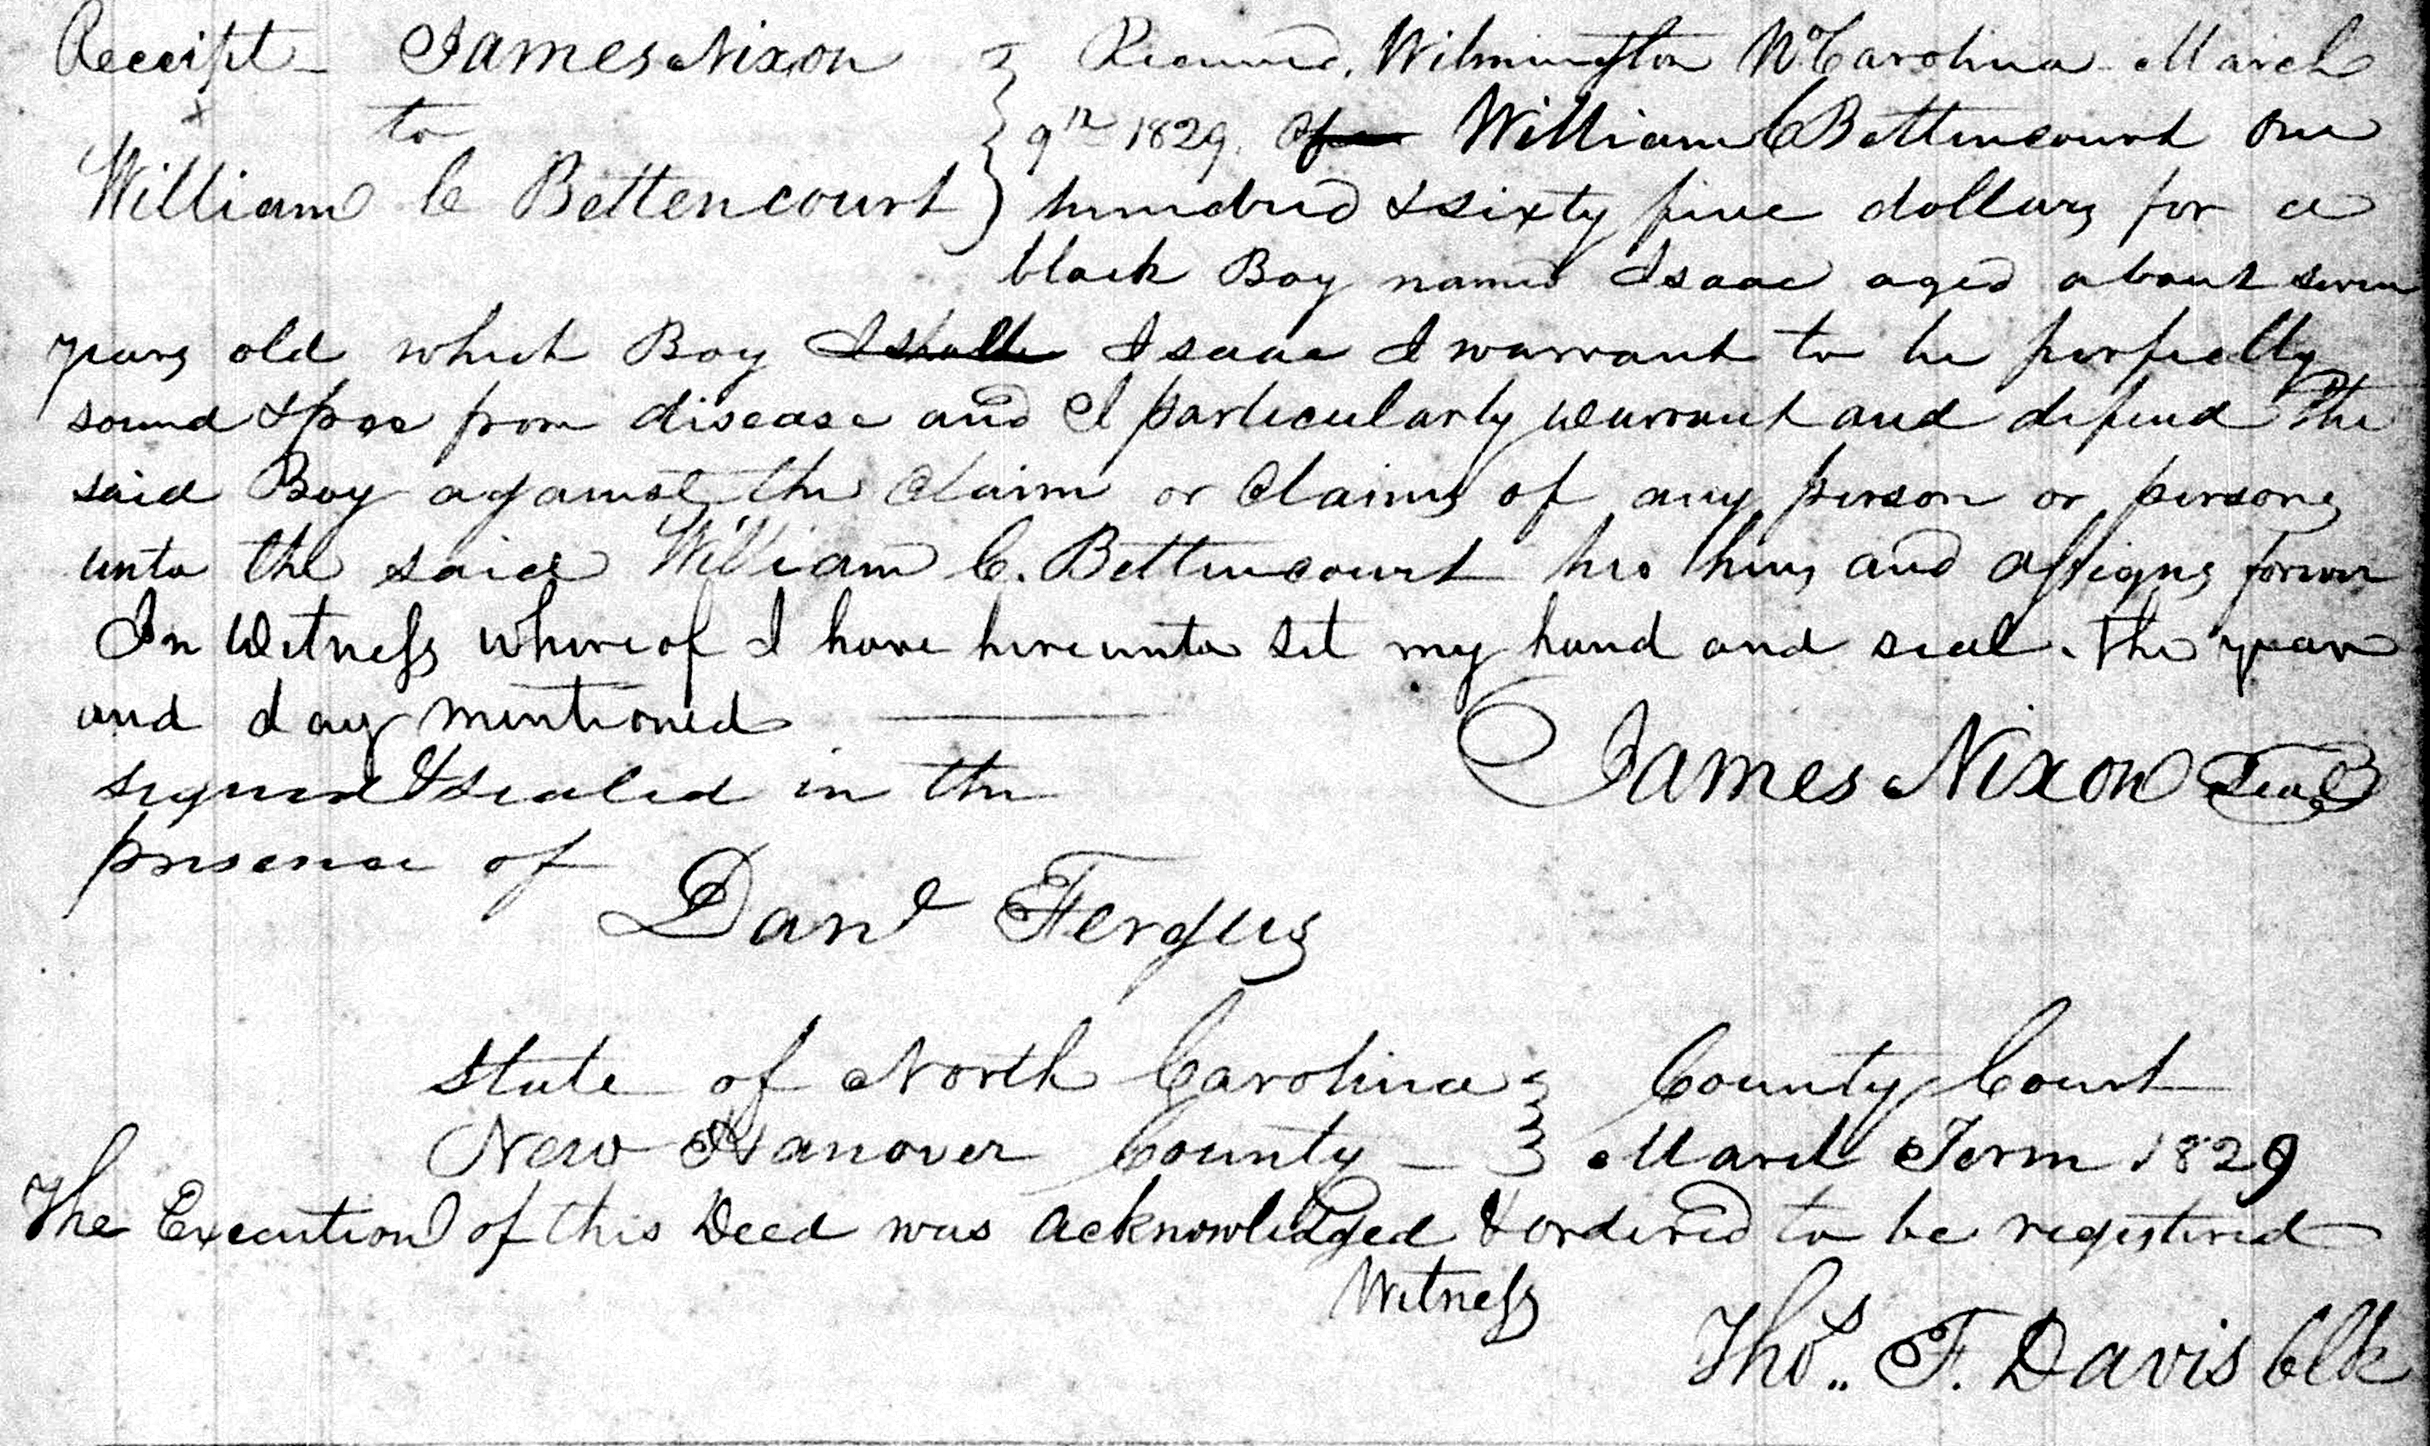 Receipt - James Nixon
to
William C Bettencourt
Received, Wilmington N Carolina March
9th 1829. Of William C Bettencourt One
hundred & sixty five dollars for a
black Boy named Isaac aged about seven
years old which Boy I shall Isaac I warrant to be perfectly
sound & free from disease and I particularly warrant and defend the
said Boy against the Claim or Claims of any person or persons
unto the said William C. Bettencourt his heirs and assigns forever
In Witness whereof I have hereunto set my hand and seal. the year
and day mentioned
James Nixon Seal
signed & sealed in the
presence of
Danl Fergus
State of North Carolina County Court
New Hanover County - March Term 1829
The Execution of this Deed was acknowledged & ordered to be registered
Witness
Thos. F. Davis Clk